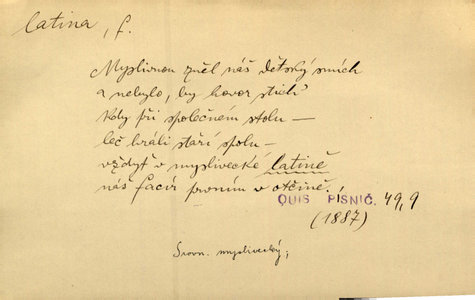 latina, f.
Myslivnou zněl náš dětský smích
a nebylo, by hovor stich'
kdy při společném stolu —
leč hráli staří spolu —
vždyť v myslivecké latině
náš facír prvním v otčině.
QUIS PÍSNIČ. 49,9
(1887)
Srovn. myslivecký;